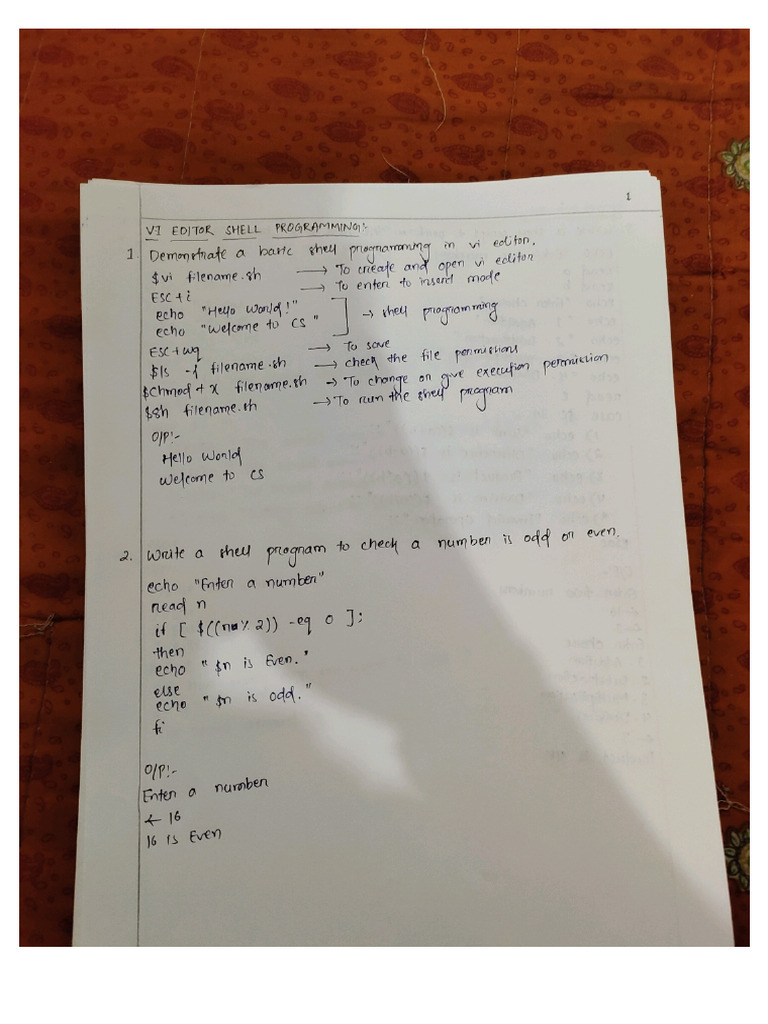 1
VI EDITOR SHELL PROGRAMMING:-
1. Demonstrate a basic shell programming in vi editor.
$vi filename.sh → To create and open vi editor
ESC+i → To enter to insert mode
echo "Hello World!"
echo "Welcome to CS" → shell programming
ESC+wq → To save
$ls -l filename.sh → check the file permissions
$chmod+x filename.sh → To change or give execution permission
$sh filename.sh → To run the shell program
O/P:-
Hello World
Welcome to CS
2. Write a shell program to check a number is odd or even.
echo "Enter a number"
read n
if [ $((n % 2)) -eq 0 ];
then
echo "$n is Even."
else
echo "$n is odd."
fi
O/P:-
Enter a number
← 16
16 is Even